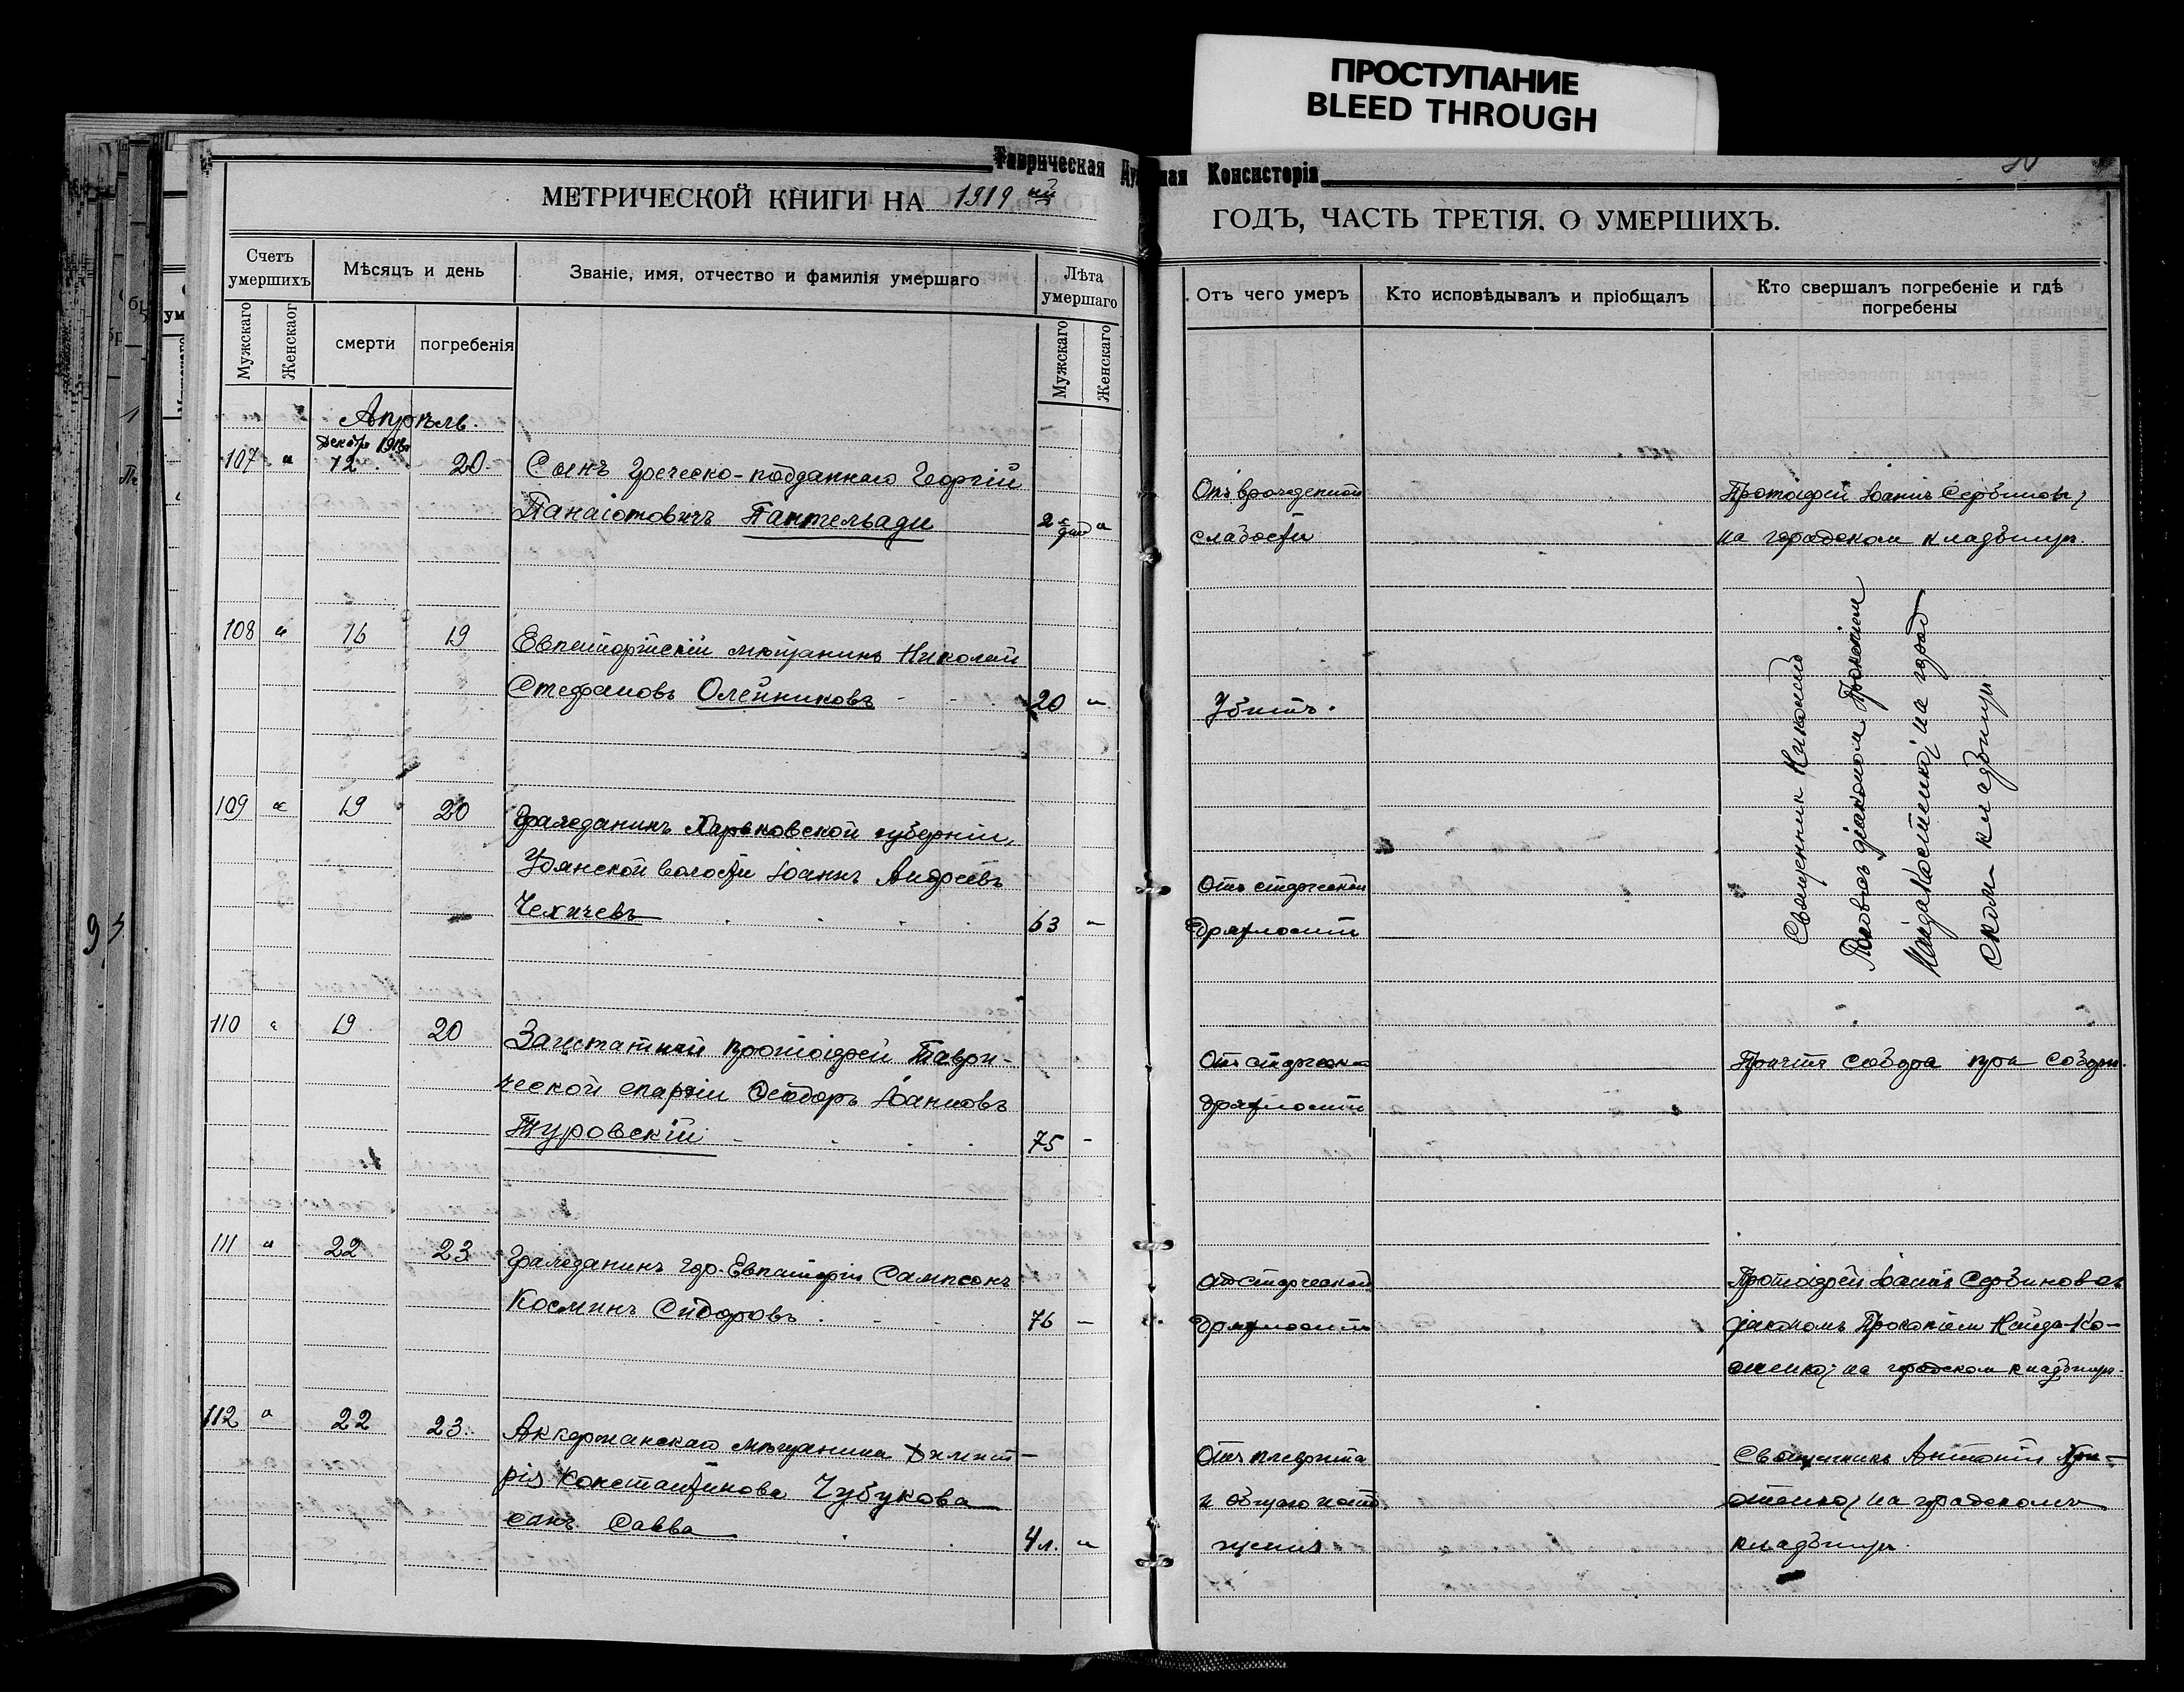 ПРОСТУПАНИЕ
BLEED THROUGH
Таврическая Духовная Консисторія
МЕТРИЧЕСКОЙ КНИГИ НА 1919 ый
ГОДЪ, ЧАСТЬ ТРЕТІЯ. О УМЕРШИХЪ.
Счетъ умершихъ
Мѣсяцъ и день
Званіе, имя, отчество и фамилія умершаго
Лѣта умершаго
Отъ чего умеръ
Кто исповѣдывалъ и пріобщалъ
Кто свершалъ погребеніе и гдѣ погребены
Мужскаго
Женскаог
смерти
погребенія
Мужскаго
Женскаго
Апрѣль.
107 " Декабр 1918 12. 20.
Сынъ Греческо-подданнаго Георгій
Панаіотовичъ Пантельади
2 дней "
Отъ врожденной
слабости
Протоіерей Іоаннъ Сербиновъ,
на городском кладбищѣ.
108 " 16 19
Евпаторійскій мѣщанинъ Николай
Стефановъ Олейниковъ
20 "
Убитъ.
Священник Николай
діаконом Прокопіем
Найда Костенко, на город
ском кладбищѣ
109 " 19 20
Гражданинъ Харьковской губерніи,
Удянской волости Іоаннъ Андреевъ
Чехичевъ
63 "
Отъ старческой
дряхлости
110 " 19 20
Заштатный протоіерей Таври-
ческой епархіи Ѳеодоръ Іоанновъ
Туровскій
75 -
От старческой
дряхлости
Причтъ собора при соборѣ.
111 " 22 23
Гражданинъ гор. Евпаторіи Сампсонъ
Косминъ Сидоровъ
76 -
От старческой
дряхлости
Протоіерей Іоаннъ Сербиновъ съ
діакономъ Прокопіем Найда-Ко-
стенко, на городском кладбищѣ.
112 " 22 23.
Аккерманскаго мѣщанина Димит-
рія Константинова Чубукова
сынъ Савва
4 л. "
Отъ плеврита
и общаго исто
щенія
Священникъ Антоній
на градскомъ
кладбищѣ.